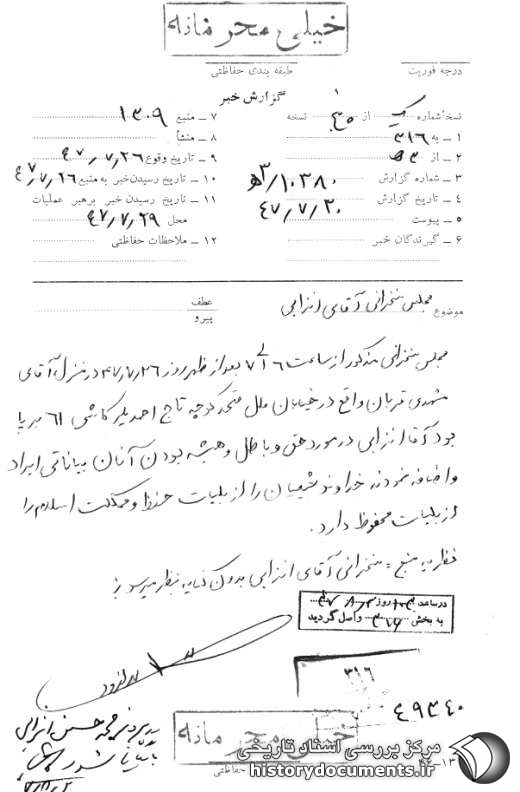 خیلی محرمانه
درجه فوریت
طبقه بندی حفاظتی
گزارش خبر
نسخه شماره یک از نسخه
۱ ـ به ۳۱۶
۲ ـ از
۳ ـ شماره گزارش ۱۰۳۸۰/ﻫ۳
۴ ـ تاریخ گزارش ۴۷٫۷٫۳۰
۵ ـ پیوست
۶ ـ گیرندگان خبر
۷ ـ منبع ۱۳۰۹
۸ ـ منشأ
۹ ـ تاریخ وقوع ۴۷٫۷٫۲۶
۱۰ ـ تاریخ رسیدن خبر به منبع ۴۷٫۷٫۲۶
۱۱ ـ تاریخ رسیدن خبر برهبر عملیات
محل ۴۷٫۷٫۲۹
۱۲ ـ ملاحظات حفاظتی
موضوع مجلس سخنرانی آقای انزابی
عطف
پیرو
مجلس سخنرانی مذکور از ساعت ۶ الی ۷ بعد از ظهر روز ۴۷٫۷٫۲۶ در منزل آقای
مشهدی قربان واقع در خیابان ملل متحد کوچه تاج احمد پلاک کاشی ۶۱ برپا
بود آقا انزابی در مورد حق و باطل و همیشه بودن آنان بیاناتی ایراد
و اضافه نمودند خداوند شیعیان را از بلیات حفظ و مملکت اسلام را
از بلیات محفوظ دارد.
نظریه منبع = سخنرانی آقای انزابی بدون کنایه بنظر میرسید
در ساعت روز
به بخش ۳۱۶ واصل گردید
۳۱۶
۴۹۳۴۰
پرونده محمد حسن انزابی
بایگانی شود
خیلی محرمانه
حفاظتی
مرکز بررسی اسناد تاریخی
historydocuments.ir